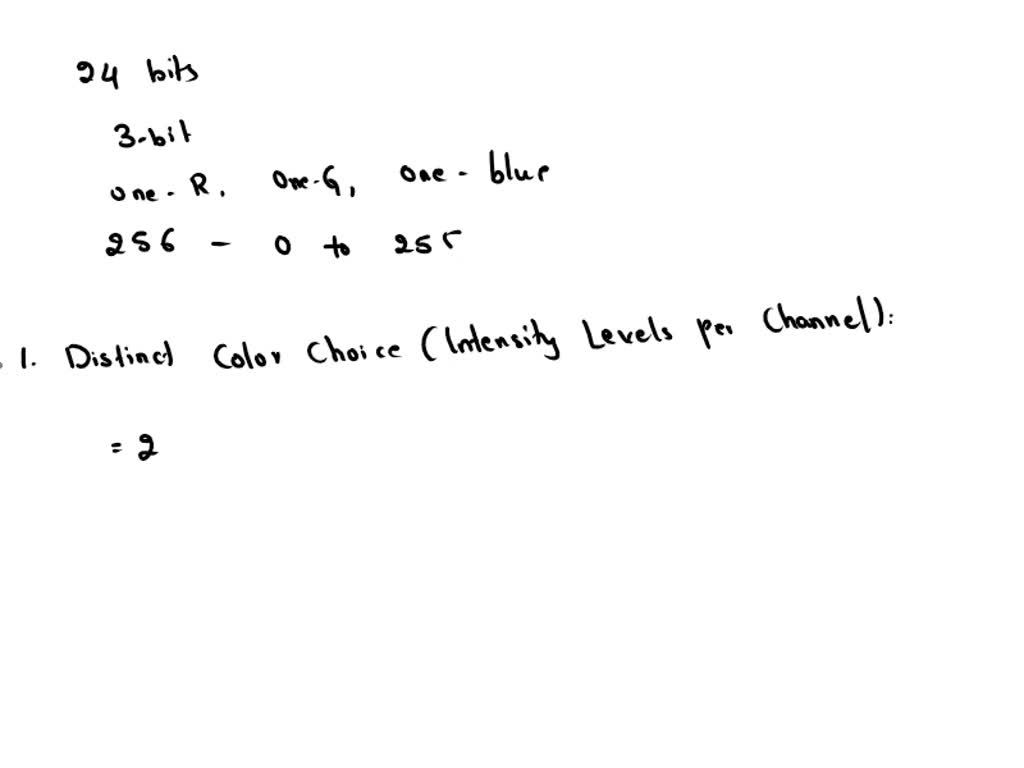 24 bits
3-bit
one - R, One-G, one - blue
256 - 0 to 255
1. Distinct Color Choice (Intensity Levels per Channel):
= 2